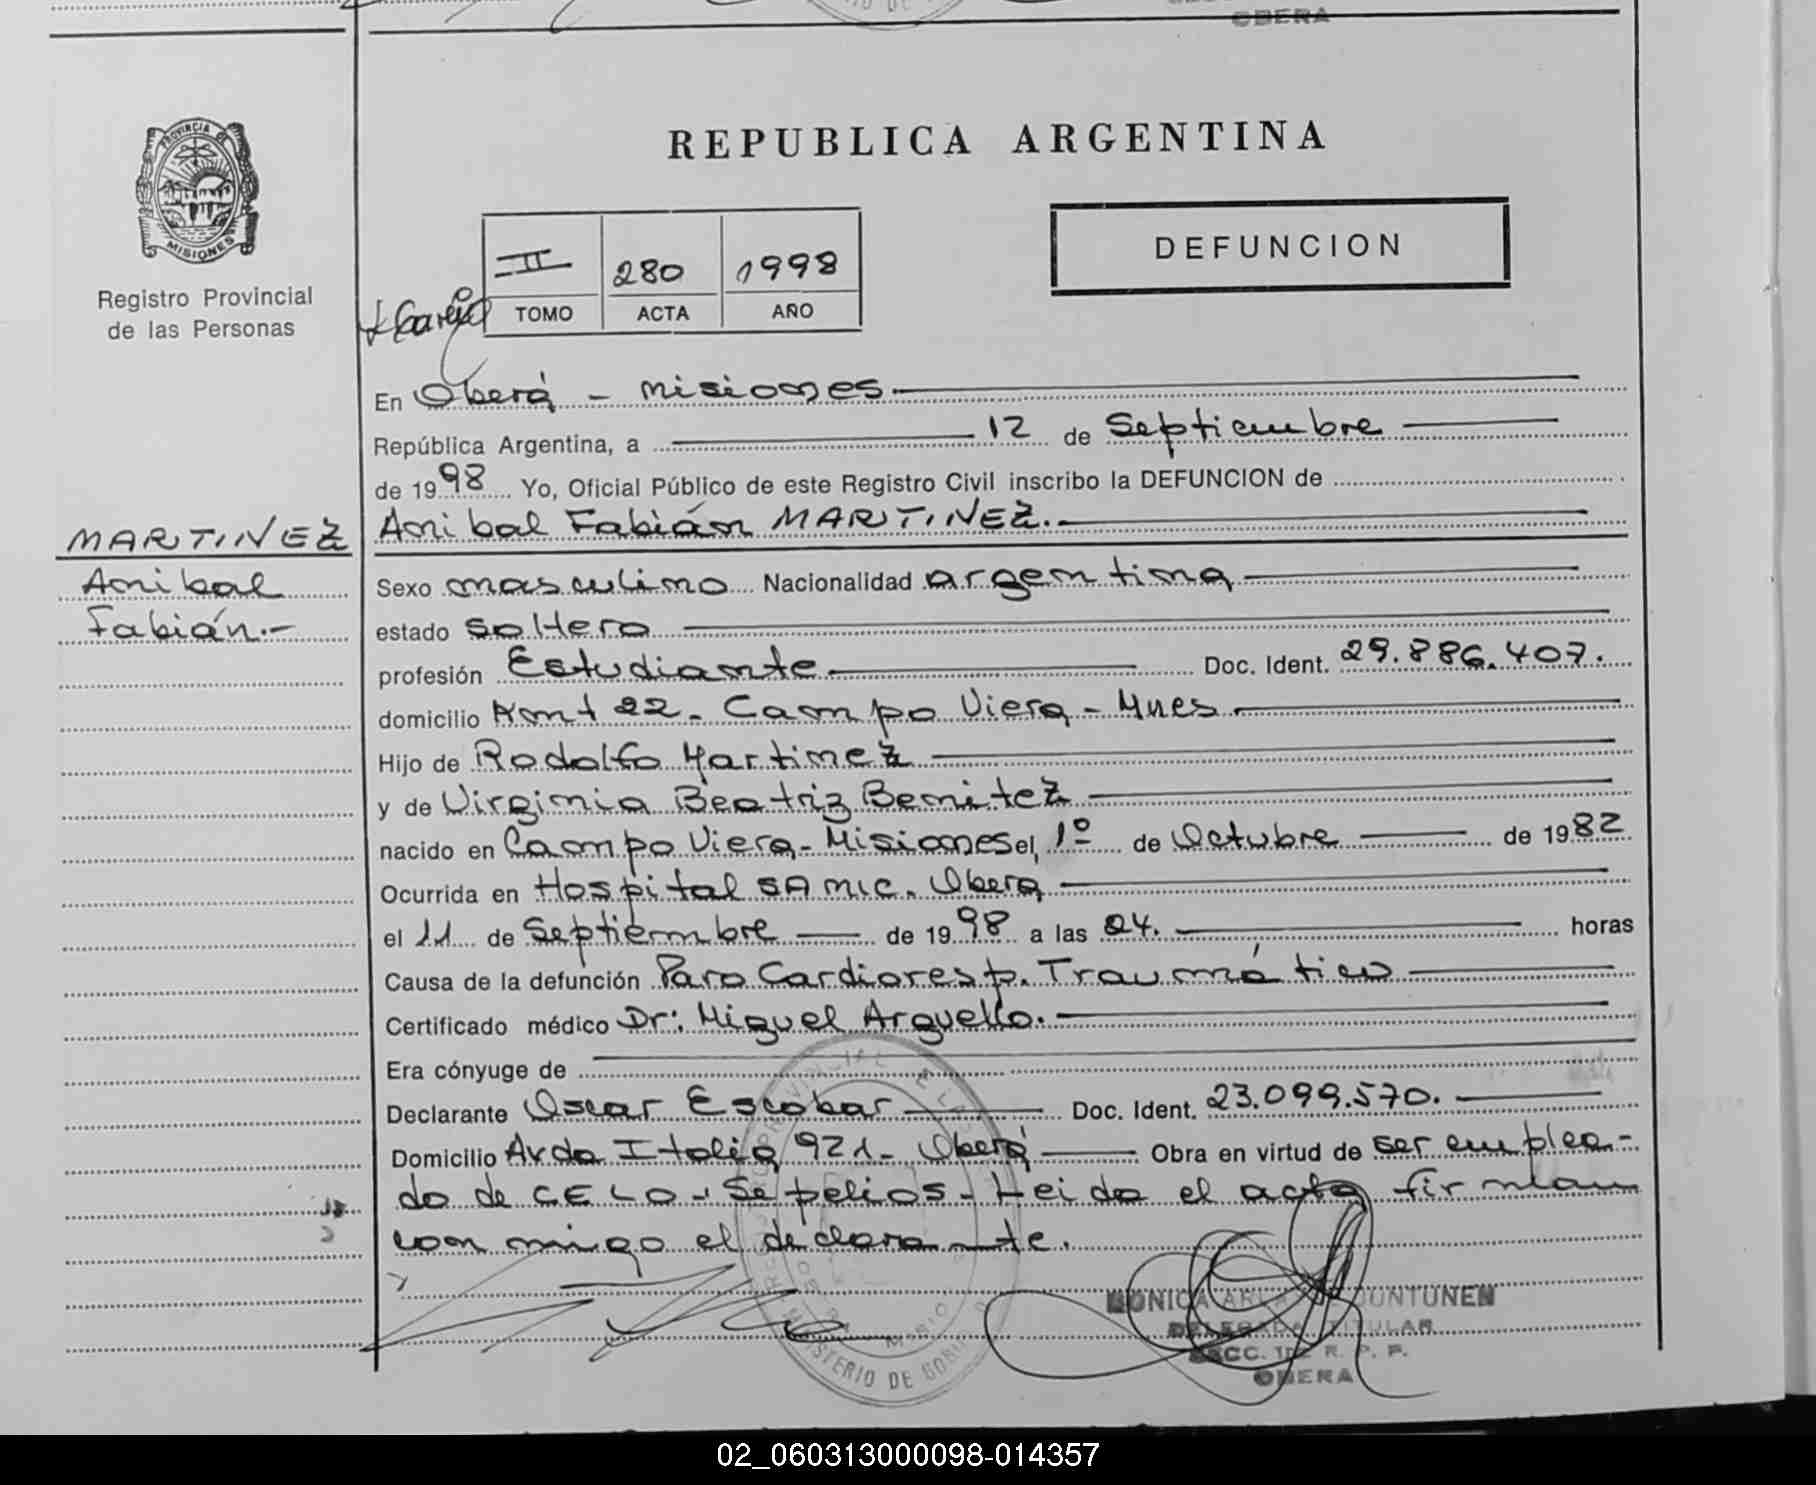 OBERA
PROVINCIA DE
MISIONES
Registro Provincial
de las Personas
REPUBLICA ARGENTINA
II 280 1998
TOMO ACTA AÑO
DEFUNCION
En Oberá - Misiones
República Argentina, a 12 de Septiembre
de 1998 Yo, Oficial Público de este Registro Civil inscribo la DEFUNCION de
MARTINEZ
Anibal Fabián MARTINEZ.
Anibal
Fabián.-
Sexo masculino Nacionalidad argentina
estado soltero
profesión Estudiante Doc. Ident. 29.886.407.
domicilio Km t 22 - Campo Viera - Mnes
Hijo de Rodolfo Martinez
y de Virginia Beatriz Benitez
nacido en Campo Viera - Misiones el, 1º de Octubre de 1982
Ocurrida en Hospital SAMIC. Oberá
el 11 de Septiembre de 1998 a las 24. horas
Causa de la defunción Paro Cardioresp. Traumático
Certificado médico Dr: Miguel Arguello.
Era cónyuge de
Declarante Oscar Escobar Doc. Ident. 23.099.570.
Domicilio Avda Italia 921 - Oberá Obra en virtud de ser emplea-
do de CELO - Sepelios - Leida el acta firman
conmigo el declarante.
MINISTERIO DE GOB
MONICA DE JUNTUNEN
DELEGADA TITULAR
R. P. P.
OBERA
02_060313000098-014357